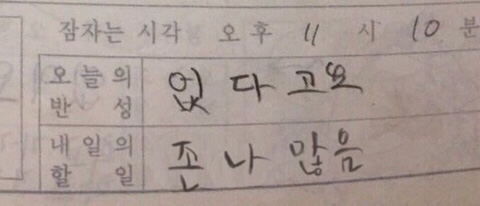 잠자는 시각 오후 11 시 10 분
오늘의 반성 없다고요
내일의 할 일 존나 많음